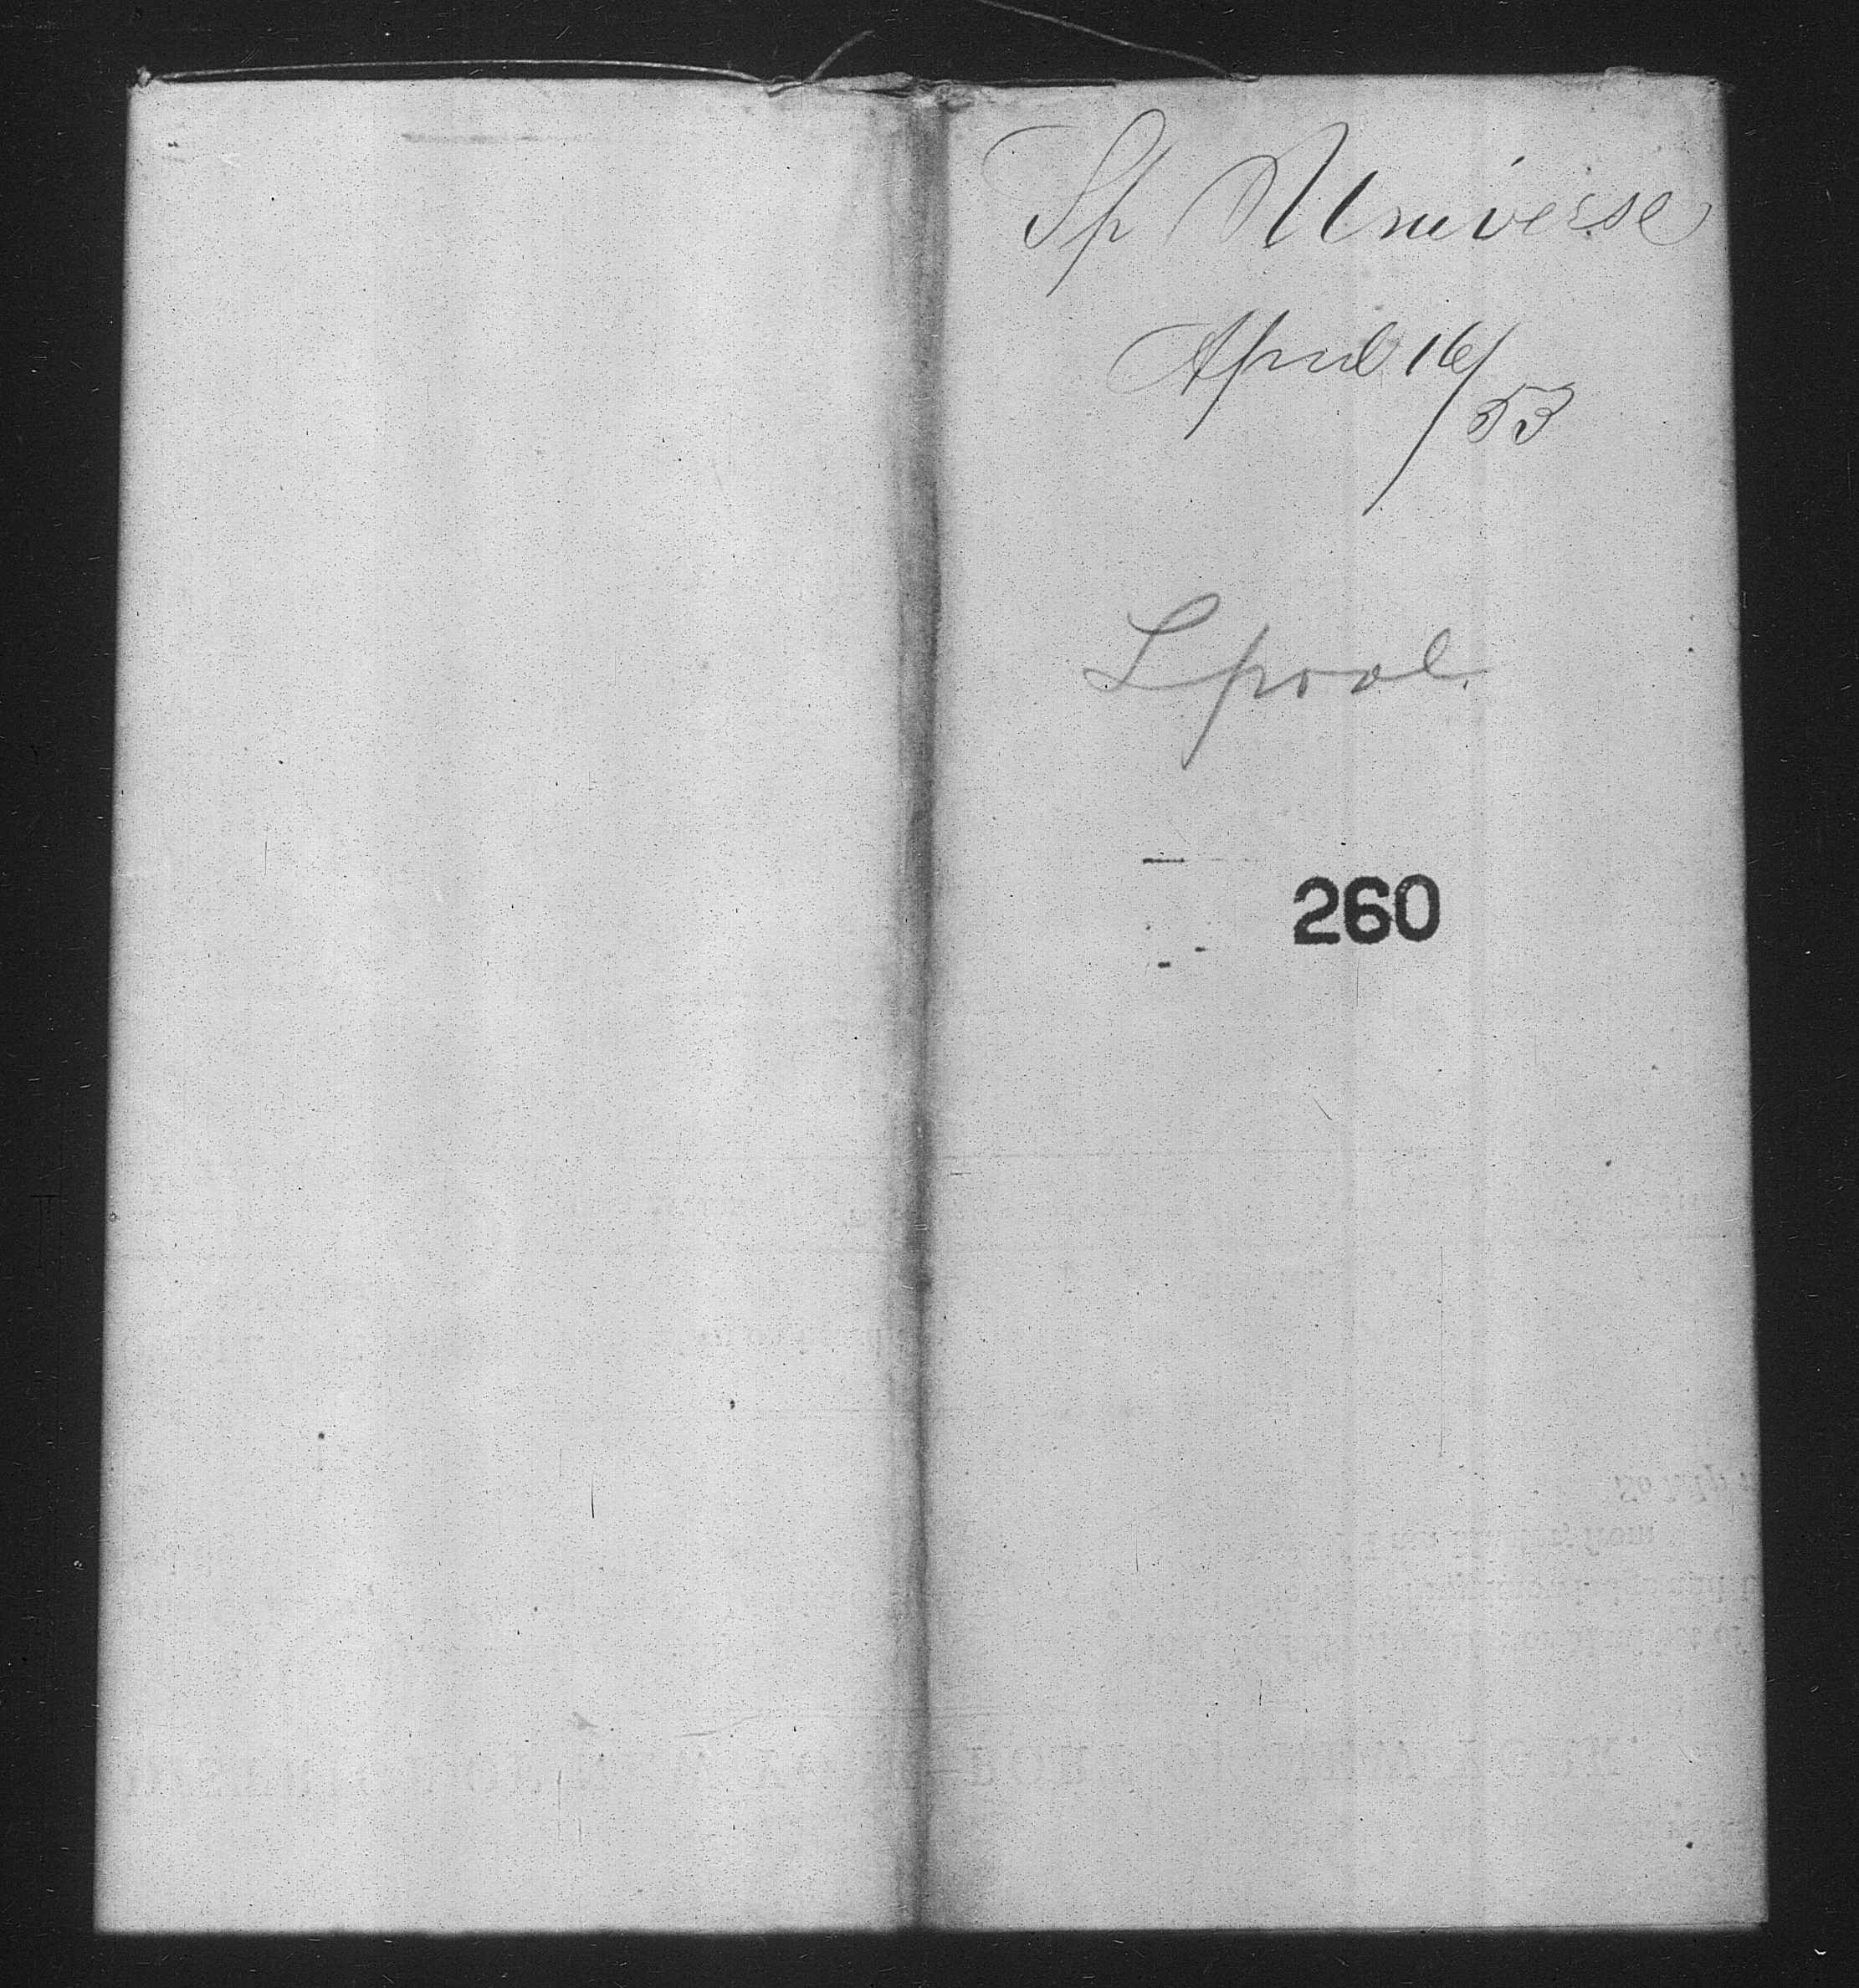 Sp Universe
April 16/53
Lpool.
260